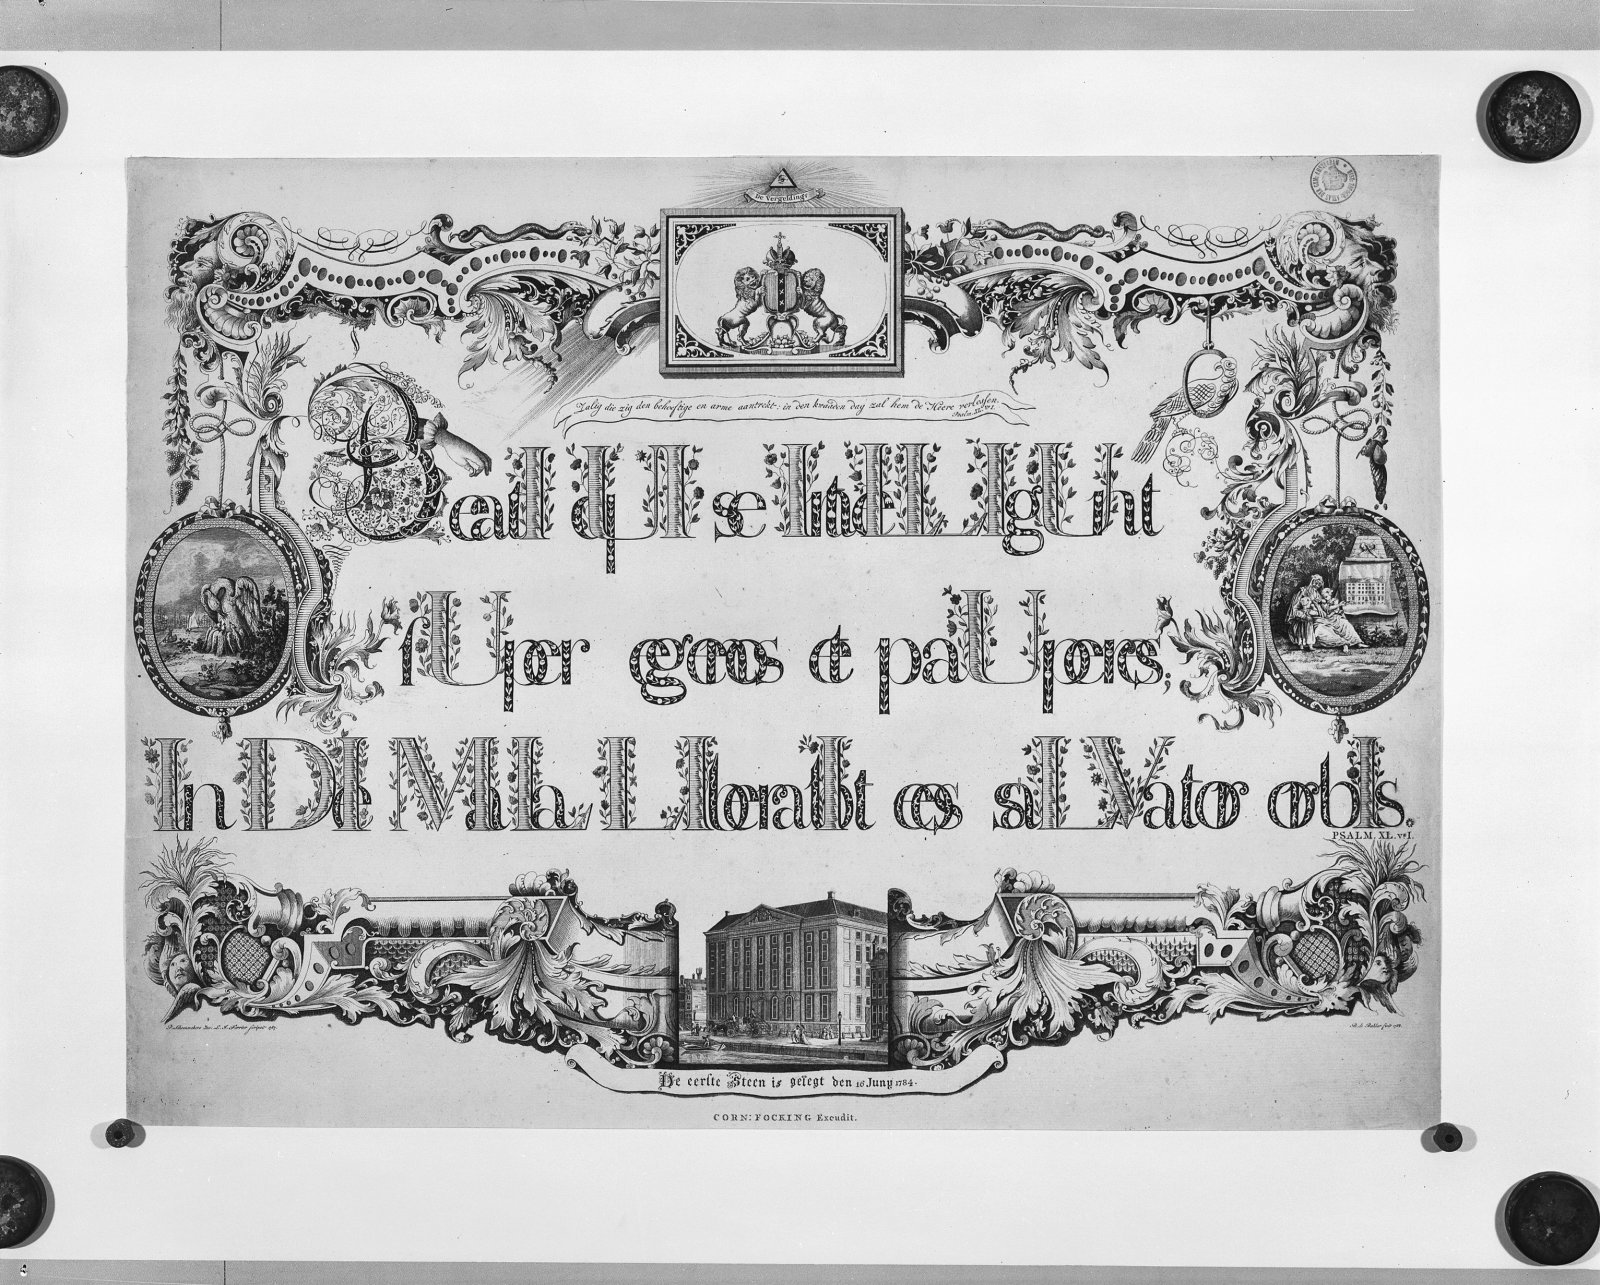 De Vergelding
Zalig die zig den behoeftige en arme aantrekt: in den kwaaden dag zal hem de Heere verlossen.
Psalm XL. vs I.
BeatI qUI se InteLLIgUnt
ſUper egenos et paUperes;
In DIe MaLa LIberabIt eos saLVator orbIs.
PSALM. XL. vs I.
De eerſte Steen is gelegt den 16 Juny 1784.
CORN: FOCKING Excudit.